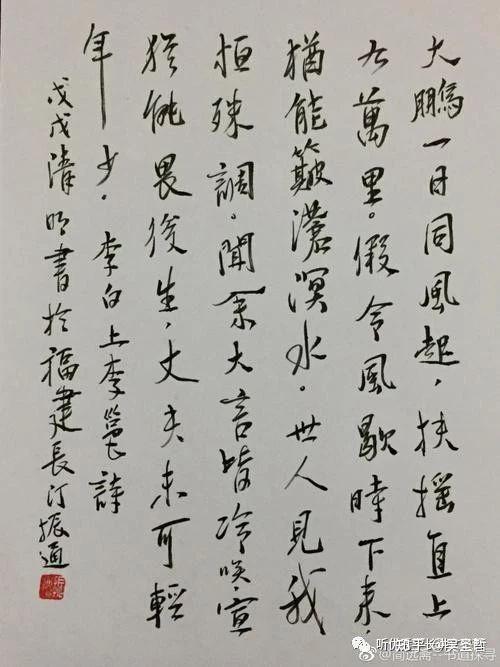 大鵬一日同風起，扶摇直上
九萬里。假令風歇時下来，
猶能簸滄溟水。世人見我
恒殊調。聞余大言皆冷咲。宣
猶能畏後生，丈夫未可輕
年少。李白上李邕詩
戊戌清明書於福建長汀振通
知乎
书道探寻